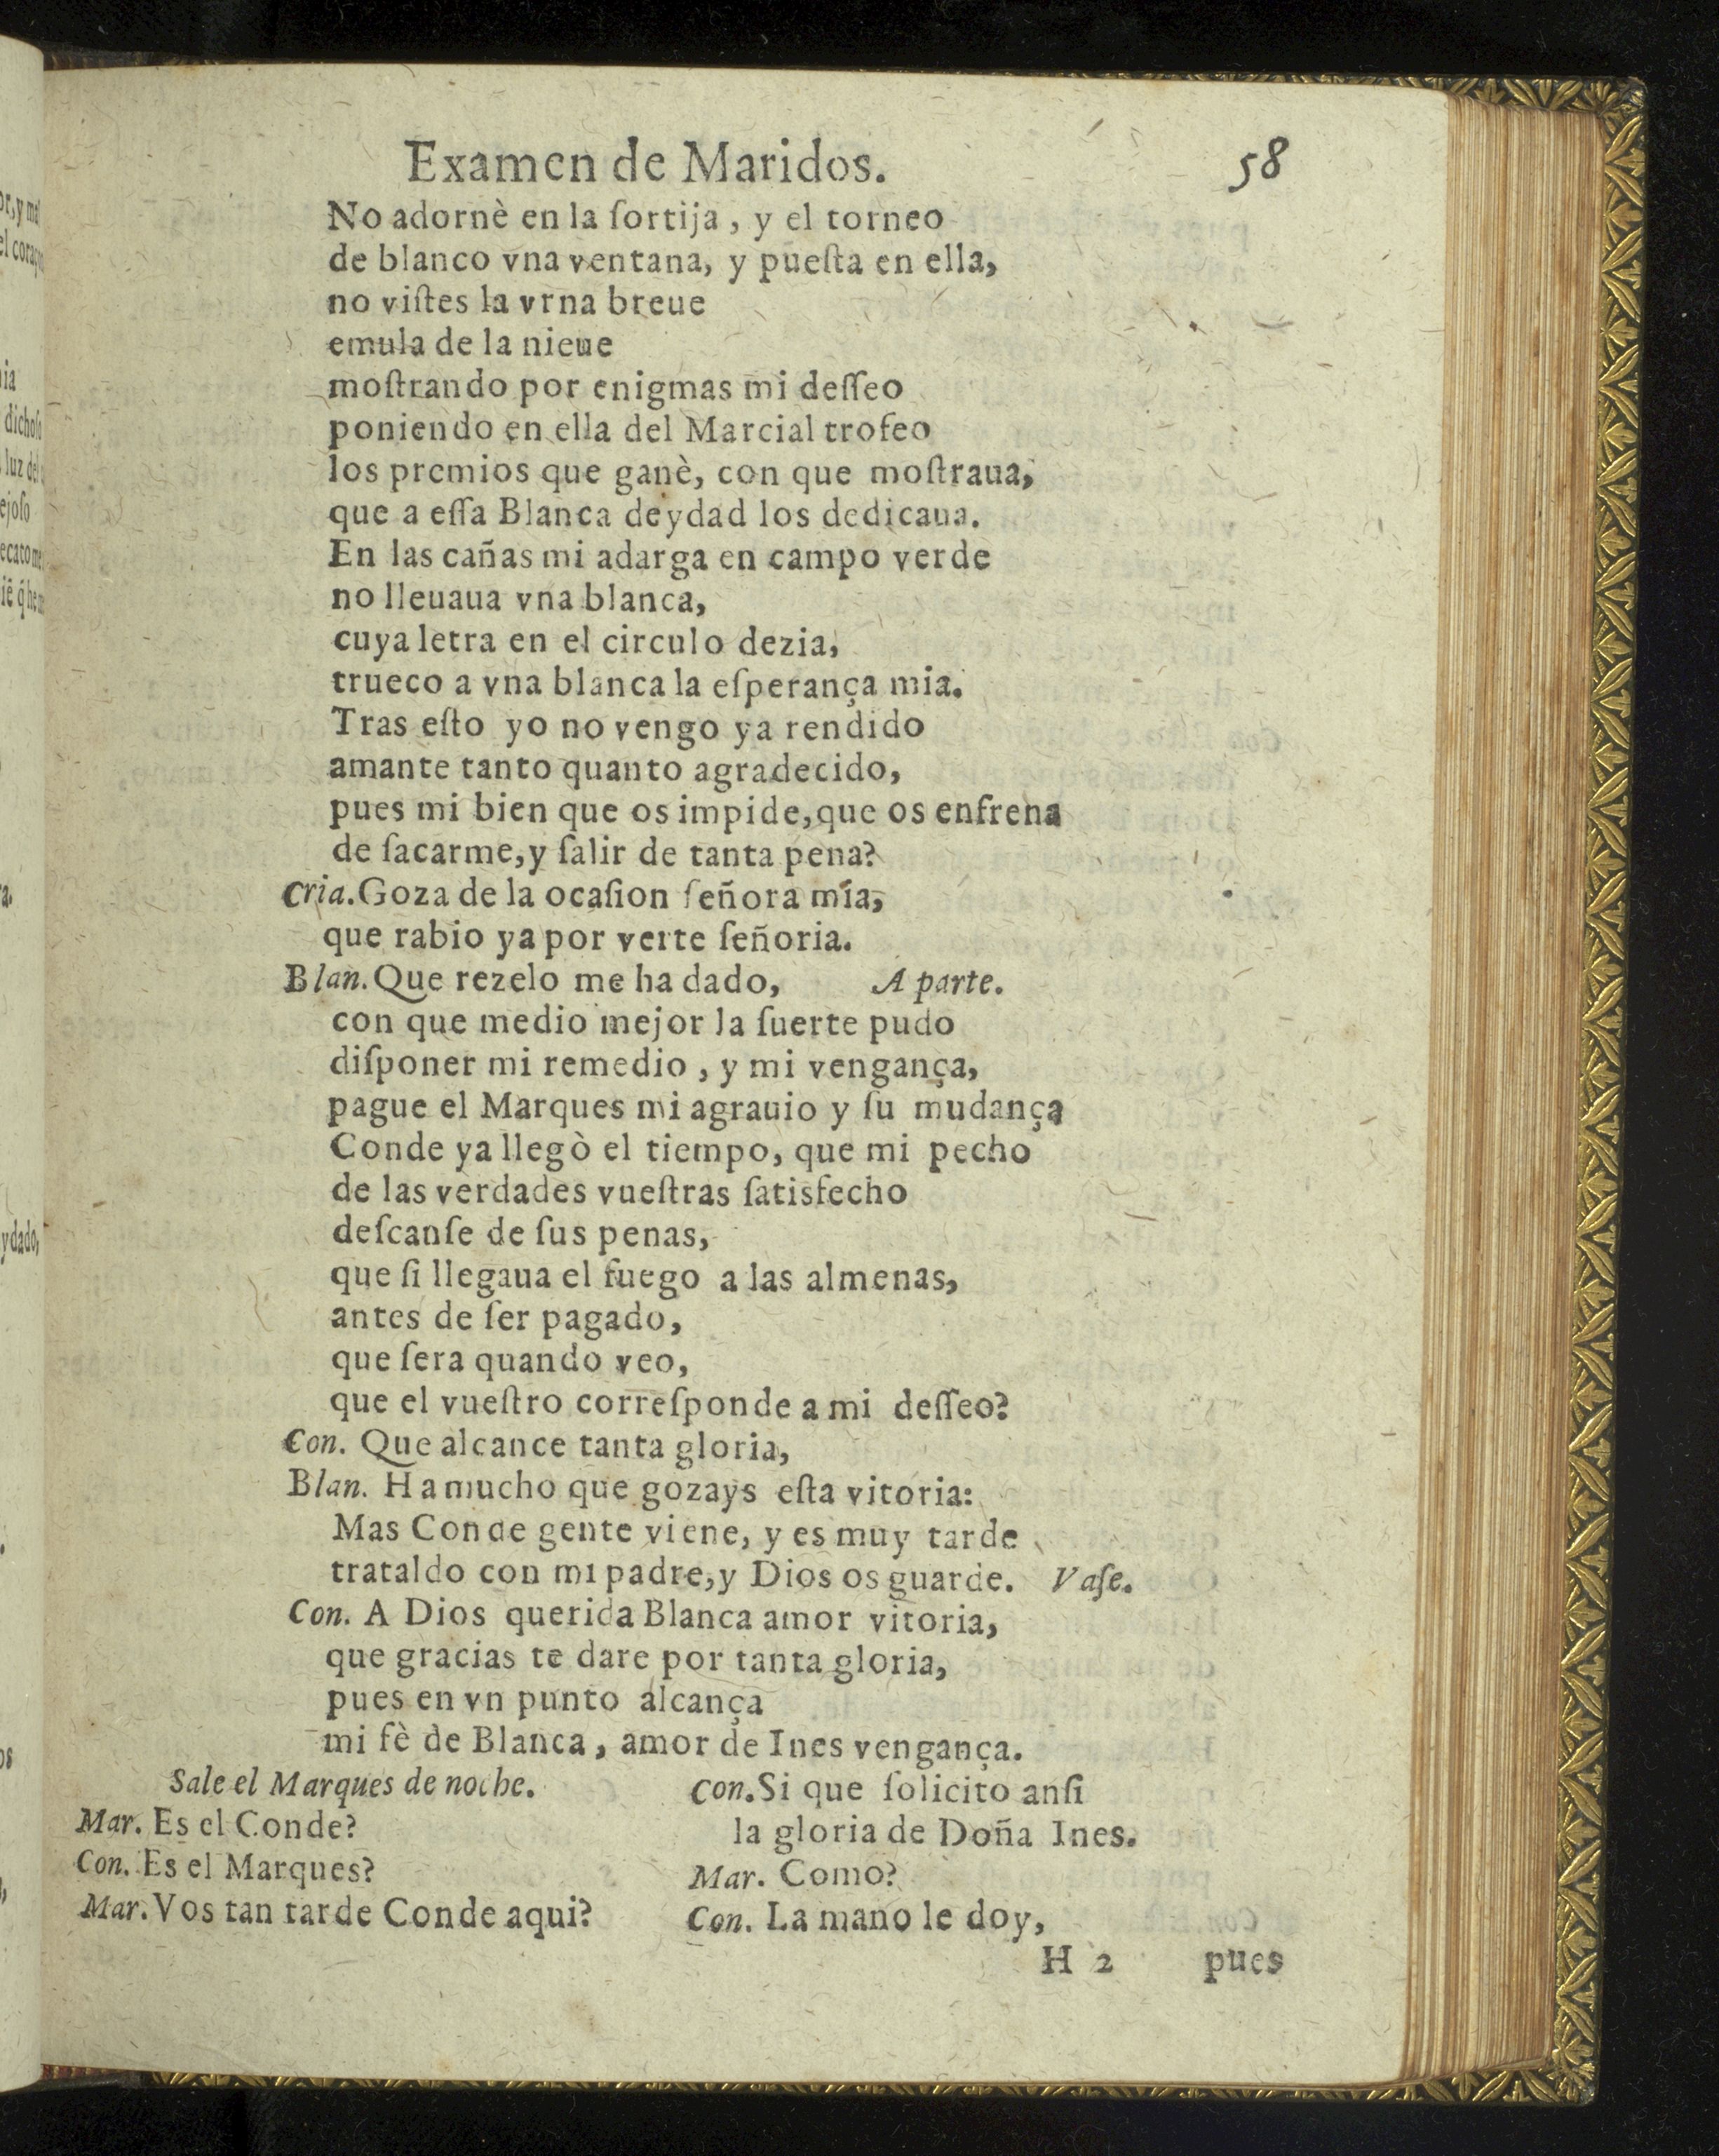 Examen de Maridos. 58
No adornè en la ſortija, y el torneo
de blanco vna ventana, y pueſta en ella,
no viſtes la vrna breue
emula de la nieue
moſtrando por enigmas mi deſſeo
poniendo en ella del Marcial trofeo
los premios que ganè, con que moſtraua,
que a eſſa Blanca deydad los dedicaua.
En las cañas mi adarga en campo verde
no lleuaua vna blanca,
cuya letra en el circulo dezia,
trueco a vna blanca la eſperança mia.
Tras eſto yo no vengo ya rendido
amante tanto quanto agradecido,
pues mi bien que os impide, que os enfrena
de ſacarme, y ſalir de tanta pena?
Cria. Goza de la ocaſion ſeñora mía,
que rabio ya por verte ſeñoria.
Blan. Que rezelo me ha dado, A parte.
con que medio mejor la ſuerte pudo
diſponer mi remedio, y mi vengança,
pague el Marques mi agrauio y ſu mudança
Conde ya llegò el tiempo, que mi pecho
de las verdades vueſtras ſatisfecho
deſcanſe de ſus penas,
que ſi llegaua el fuego a las almenas,
antes de ſer pagado,
que ſera quando veo,
que el vueſtro correſponde a mi deſſeo?
Con. Que alcance tanta gloria,
Blan. Ha mucho que gozays eſta vitoria:
Mas Conde gente viene, y es muy tarde
trataldo con mi padre, y Dios os guarde. Vaſe.
Con. A Dios querida Blanca amor vitoria,
que gracias te dare por tanta gloria,
pues en vn punto alcança
mi fè de Blanca, amor de Ines vengança.
Sale el Marques de noche.
Mar. Es el Conde?
Con. Es el Marques?
Mar. Vos tan tarde Conde aqui?
Con. Si que ſolicito anſi
la gloria de Doña Ines.
Mar. Como?
Con. La mano le doy,
H 2 pues